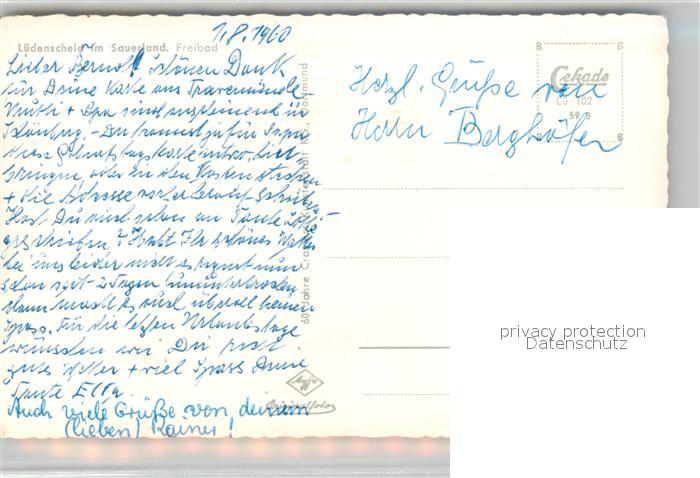 1.8.1960
Lüdenscheid im Sauerland. Freibad
Lieber Bernd! Schönen Dank
für Deine Karte aus Travemünde.
Mutti + Opa sind augenblicklich in
Du kannst ja für Papa
diese Geburtstagskarte
bringen, oder in den Kasten stecken
+ die Adresse vorher drauf schreiben.
Hast Du auch schon an Tante Lotte
geschrieben? Habt Ihr schönes Wetter
bei uns leider nicht es regnet nun
schon seit 2 Tagen ununterbrochen
dann macht es auch überall keinen
Spass. Für die letzten Urlaubstage
wünschen wir Dir recht
gutes Wetter + viel Spass Deine
Tante Ella.
Auch viele Grüße von deinem
(lieben) Rainer!
Herzl. Grüße von
Herrn Berghöfer
60 Jahre Cramers Kunstanstalt KG, Dortmund
Cekade
Lü 102
59 B
B B
B B
Agfa
Originalfoto
privacy protection
Datenschutz